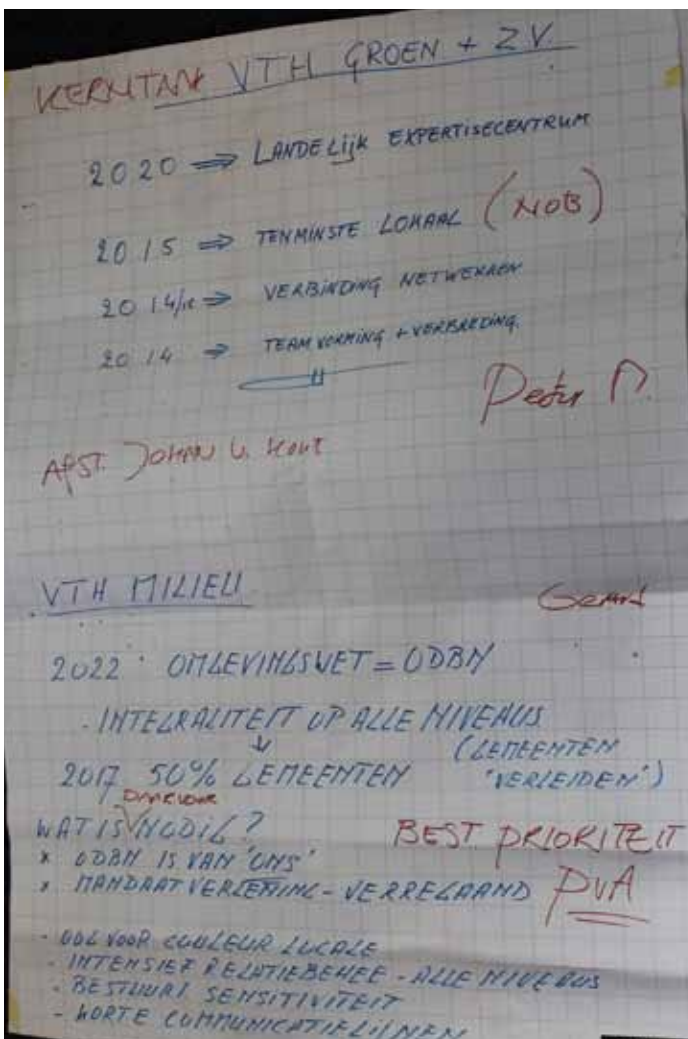 KERNTAAK VTH GROEN + ZV.
2020 ⇒ LANDELijk EXPERTISECENTRUM
2015 ⇒ TENMINSTE LOKAAL (NOB)
2014/15 ⇒ VERBINDING NETWERKEN
2014 ⇒ TEAMVORMING + VERBREDING.
Peter P.
AfST. JOHAN v. HOUT
VTH MILIEU
Gerard
2022 OMGEVINGSWET = ODBN
- INTEGRALITEIT OP ALLE NIVEAUS
(GEMEENTEN
2017 50% GEMEENTEN 'VERLEIDEN')
WAT IS NODIG?
BEST PRIORITEIT
* ODBN IS VAN 'ONS'
* MANDAATVERLENING - VERREGAAND PvA
- OOG VOOR COULEUR LOCALE
- INTENSIEF RELATIEBEHEE - ALLE NIVEAUS
- BESTUURL SENSITIVITEIT
- KORTE COMMUNICATIELIJNEN